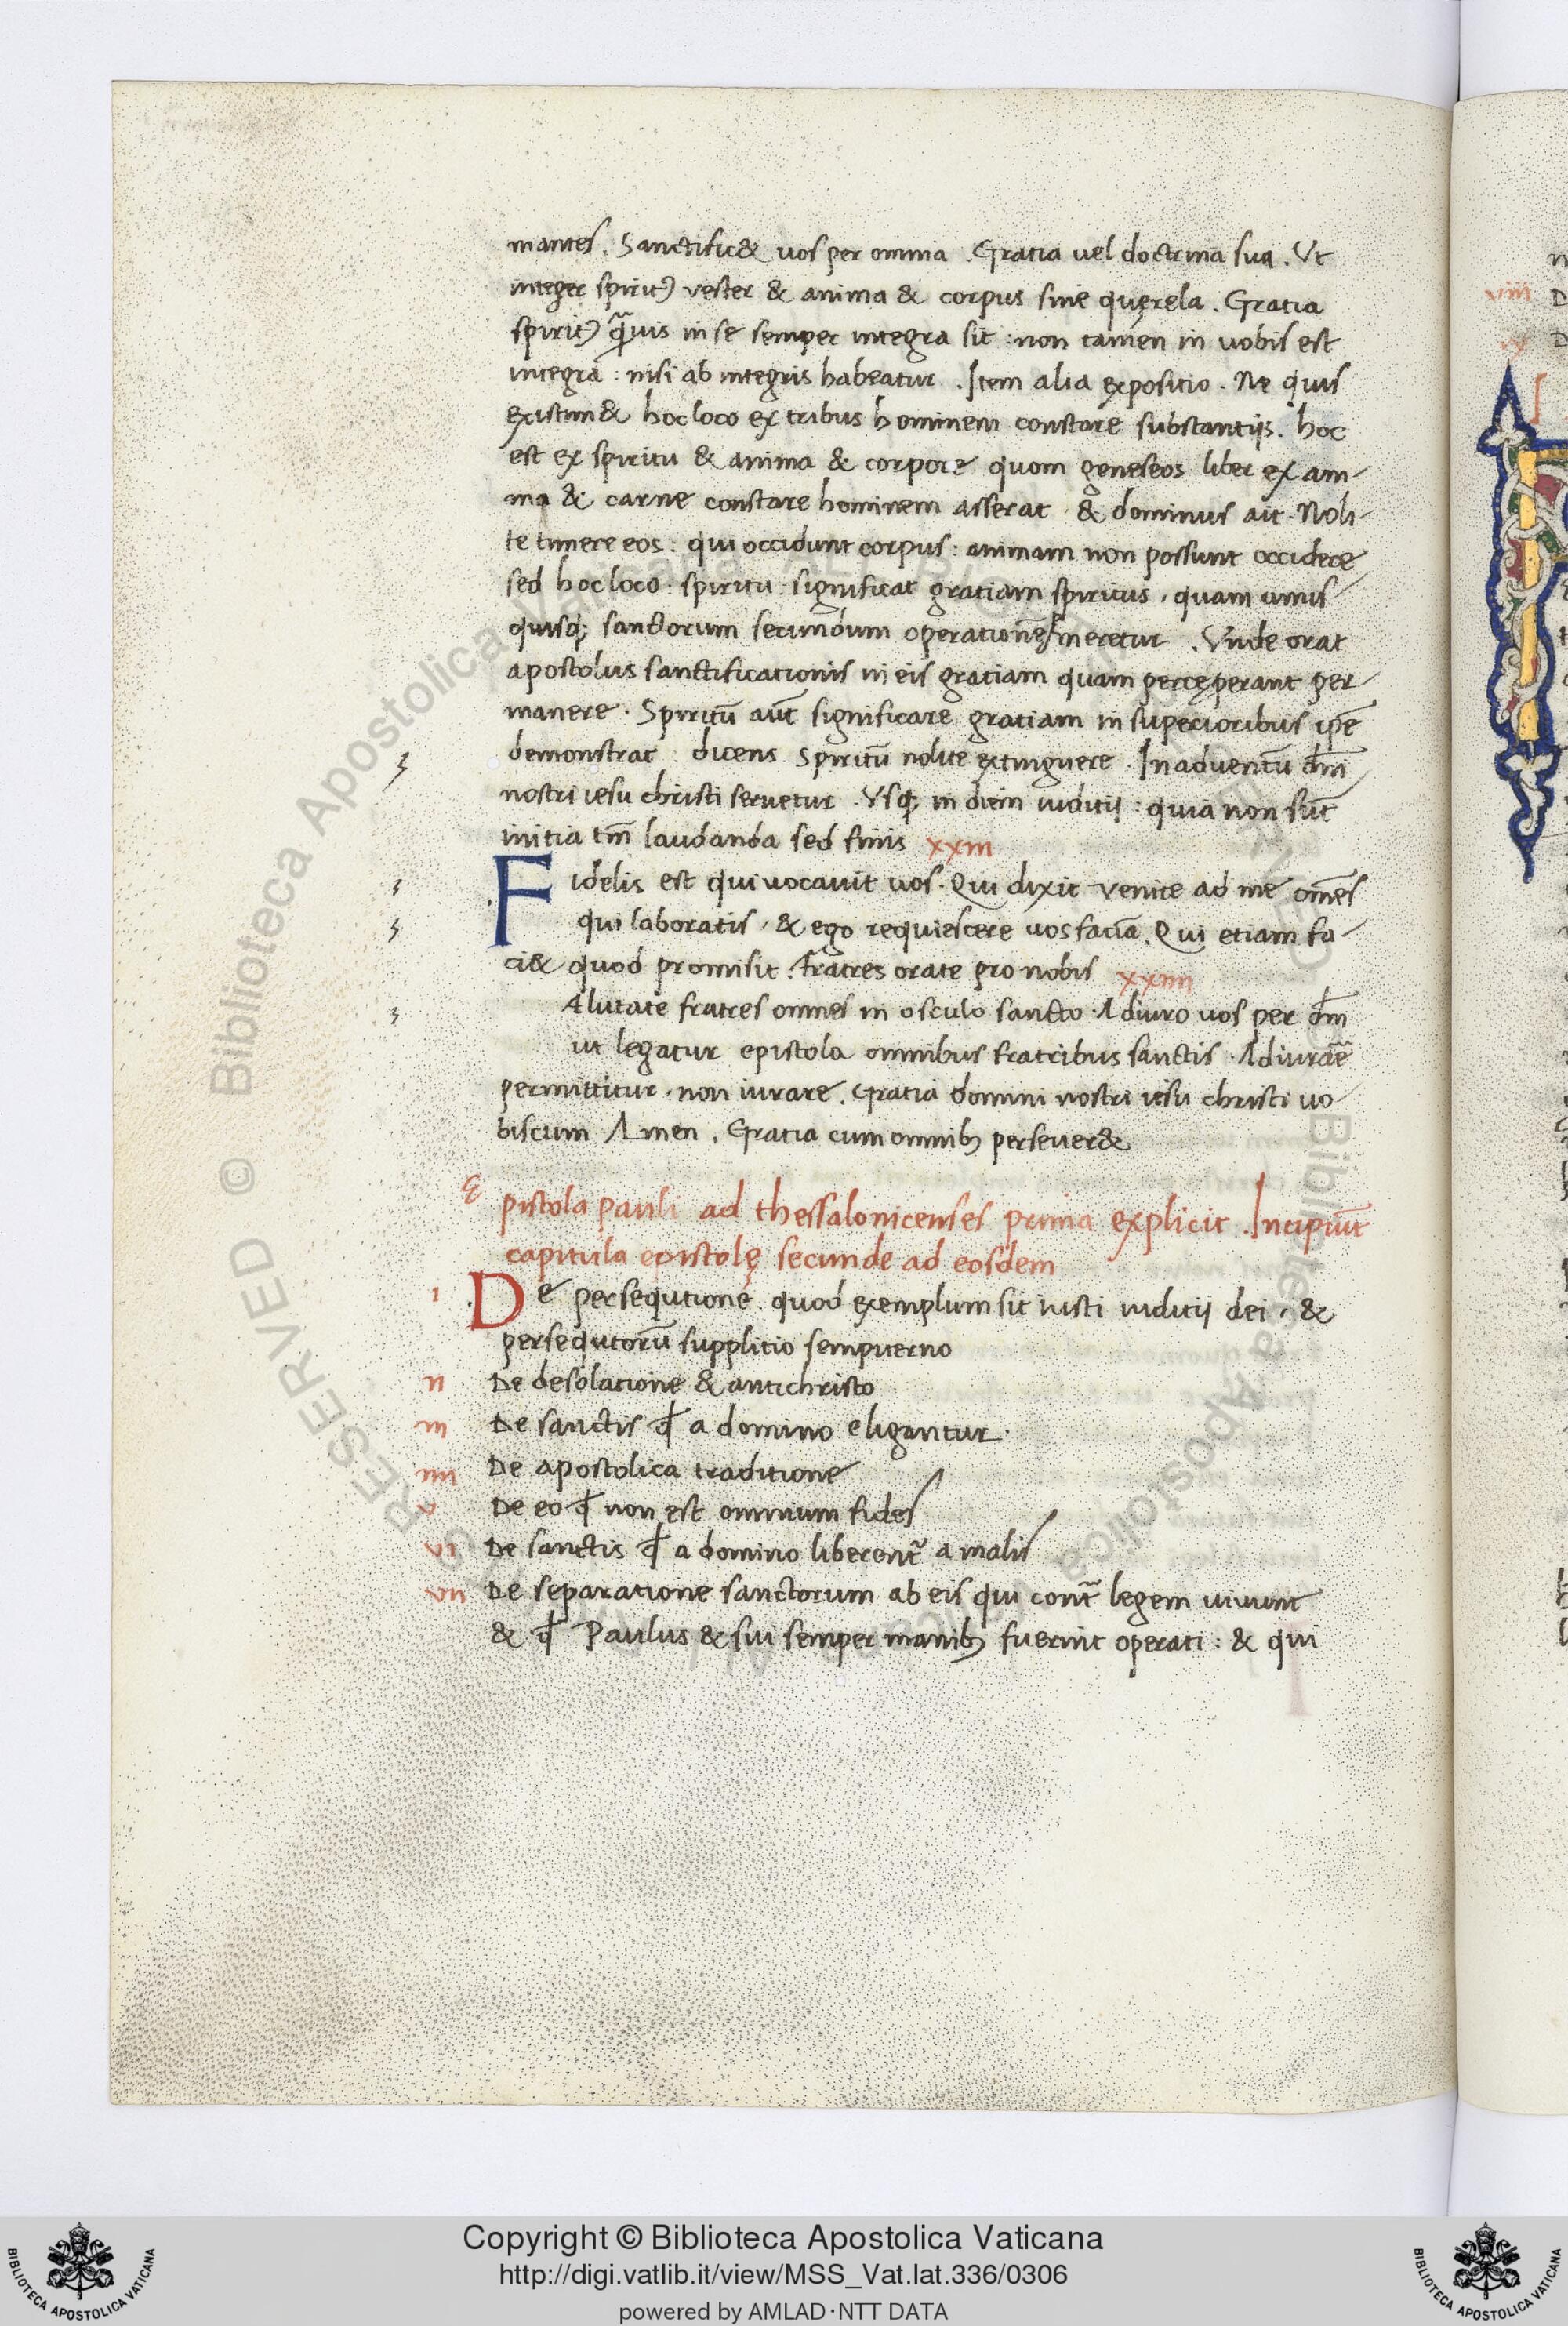 mantes. Sanctific& uos per omnia. Gratia uel doctrina sua. Ut
integer spirit⁹ vester & anima & corpus sine quęrela. Gratia
spirit⁹ q̃uis in se semper integra sit: non tamen in uobis est
integra: nisi ab integris habeatur. Item alia expositio. Ne quis
existim& hoc loco ex tribus hominem constare substantijs. hoc
est ex spiritu & anima & corpore quom geneseos liber ex ani-
ma & carne constare hominem asserat & dominus ait. Noli-
te timere eos: qui occidunt corpus: animam non possunt occidere
sed hoc loco: spiritu significat gratiam spiritus, quam unus
quisq; sanctorum secundum operationes meretur. Vnde orat
apostolus sanctificationis in eis gratiam quam percęperant per-
manere. Spiritū aūt significare gratiam in superioribus ip̄e
demonstrat: dicens spiritū nolite extinguere. In adventū dn̄i
nostri iesu christi seruetur. Vsq; in diem iuditij: quia non sūt
initia tm̄ laudanda sed finis xxiii
Fidelis est qui uocauit uos. Qui dixit venite ad me om̄es
qui laboratis, & ego requiescere uos faciā. Qui etiam fa-
ci& quod promisit. Fratres orate pro nobis xxiiii
Alutate fratres omnes in osculo sancto. Adiuro uos per dm̄
ut legatur epistola omnibus fratribus sanctis. Adiurar̄e
permittitur, non iurare. Gratia domini nostri iesu christi uo-
biscum Amen. Gratia cum omnib; perseuer&
Epistola pauli ad thessalonicenses prima explicit. Incipiūt
capitula epistolę secunde ad eosdem
i De persequtione quod exemplum sit iusti iuditij dei, &
persequtorū supplitio sempiterno
ii De desolatione & antichristo
iii De sanctis ꝙ a domino eligantur.
iiii De apostolica traditione
v De eo ꝙ non est omnium fides
vi De sanctis ꝙ a domino liberent̃ a malis
vii De separatione sanctorum ab eis qui cont̃ legem uiuunt
& ꝙ Paulus & sui semper manib; fuerint operati: & qui
viii D
Copyright © Biblioteca Apostolica Vaticana
http://digi.vatlib.it/view/MSS_Vat.lat.336/0306
powered by AMLAD·NTT DATA
BIBLIOTECA APOSTOLICA VATICANA
BIBLIOTECA APOSTOLICA VATICANA